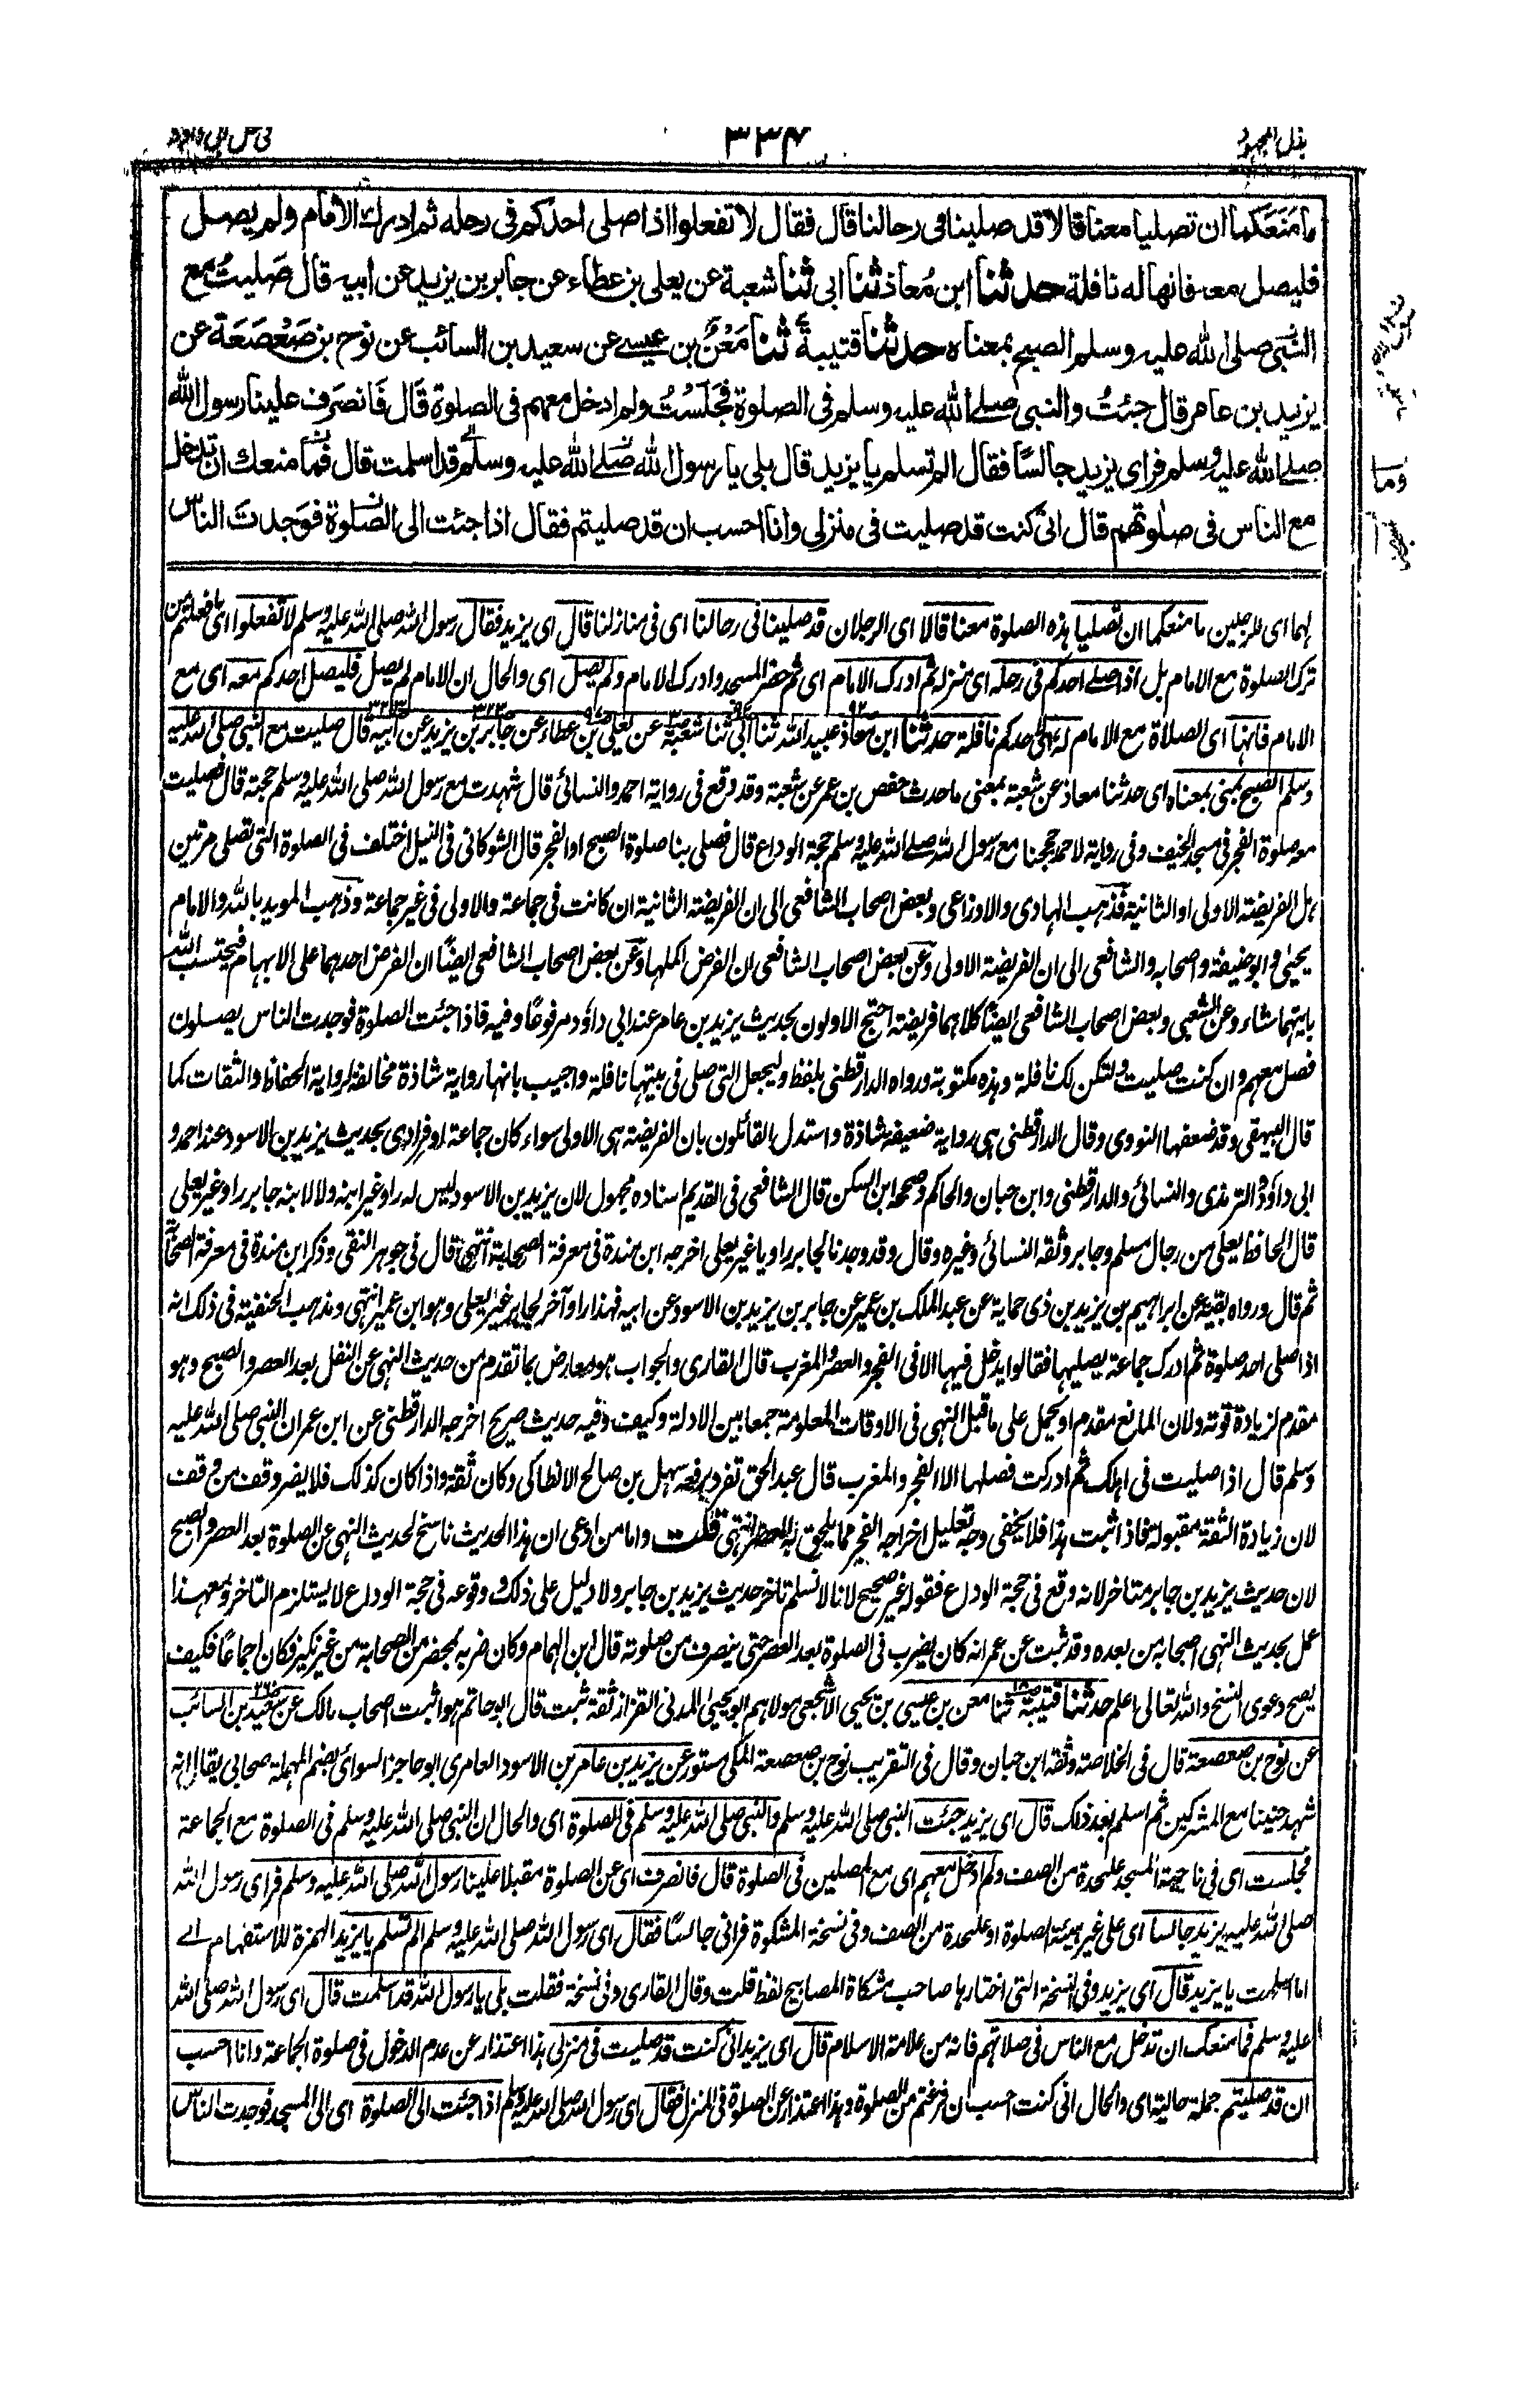 بذل المجهود
٣٣٤
ما منعكما ان تصليا معنا قالا قد صلينا فى رحالنا قال فقال لا تفعلوا اذا صلى احدكم فى رحله ثم ادرك الامام ولم يصل
فليصل معه فانها له نافلة حدثنا ابن مُعاذ ثنا ابى ثنا شعبة عن يعلى بن عطاء عن جابر بن يزيد عن ابيه قال صَليتُ مع
النبى صلى الله عليه وسلم الصبح بمعناه حدثنا قتيبة ثنا مَعْنُ بن عيسى عن سعيد بن السائب عن نوح بن صَعْصَعَة عن
يزيد بن عامر قال جئتُ والنبى صلى الله عليه وسلم فى الصلوة فجَلَسْتُ ولم ادخل معهم فى الصلوة قَال فَانصَرف علينا رسول الله
صلى الله عليه وسلم فراى يزيد جالسًا فقال الم تسلم يا يزيد قال بلى يا رسول الله صلى الله عليه وسلم قد اسلمت قال فما منعك ان تدخل
مع الناس فى صلوتهم قال انى كنت قد صليت فى منزلى وانا احسب ان قد صليتم فقال اذا جئت الى الصلوة فوَجدتَ الناس
لهما اى للرجلين ما منعكما ان تصليا هذه الصلوة معنا قالا اى الرجلان قد صلينا فى رحالنا اى فى منازلنا قال اى يزيد فقال رسول الله صلى الله عليه وسلم لا تفعلوا اى ما فعلتم من
ترك الصلوة مع الامام بل اذا صلى احدكم فى رحله اى منزله ثم ادرك الامام اى ثم حضر المسجد وادرك الامام ولم يصل اى والحال ان الامام لم يصل فليصل احدكم معه اى مع
الامام فانها اى الصلاة مع الامام له اى لاحدكم نافلة حدثنا ابن معاذ عبيد الله ثنا ابى ثنا شعبة عن يعلى بن عطاء عن جابر بن يزيد عن ابيه قال صليت مع النبى صلى الله عليه
وسلم الصبح بمنى بمعناه اى حدثنا معاذ عن شعبة بمعنى ما حدث حفص بن عمر عن شعبة وقد وقع فى رواية احمد والنسائى قال شهدت مع رسول الله صلى الله عليه وسلم حجته قال فصليت
معه صلوة الفجر فى مسجد الخيف وفى رواية لاحمد حججنا مع رسول الله صلى الله عليه وسلم حجة الوداع قال فصلى بنا صلوة الصبح او الفجر قال الشوكانى فى النيل اختلف فى الصلوة التى تصلى مرتين
هل الفريضة الاولى او الثانية فذهب الهادى والاوزاعى وبعض اصحاب الشافعى الى ان الفريضة الثانية ان كانت فى جماعة والاولى فى غير جماعة وذهب المويد بالله والامام
يحيى وابو حنيفة واصحابه والشافعى الى ان الفريضة الاولى وعن بعض اصحاب الشافعى ان الفرض اكملهما وعن بعض اصحاب الشافعى ايضًا ان الفرض احدهما على الابهام فيحتسب الله
بايتهما شاء وعن الشعبى وبعض اصحاب الشافعى ايضًا كلاهما فريضة احتج الاولون بحديث يزيد بن عامر عند ابى داود مرفوعًا وفيه فاذا جئت الصلوة فوجدت الناس يصلون
فصل معهم وان كنت صليت ولتكن لك نافلة وهذه مكتوبة ورواه الدارقطنى بلفظ وليجعل التى صلى فى بيتها نافلة واجيب بانها رواية شاذة مخالفة لرواية الحفاظ والثقات كما
قال البيهقى وقد ضعفها النووى وقال الدارقطنى هى رواية ضعيفة شاذة واستدل القائلون بان الفريضة هى الاولى سواء كان جماعة او فرادى بحديث يزيد بن الاسود عند احمد و
ابى داود والترمذى والنسائى والدارقطنى وابن حبان والحاكم وصححه ابن السكن قال الشافعى فى القديم اسناده مجهول لان يزيد بن الاسود ليس له راو غير ابنه ولا لابنه جابر راو غير يعلى
قال الحافظ يعلى من رجال مسلم وجابر وثقه النسائى وغيره وقال وقد وجدنا لجابر راويا غير يعلى اخرجه ابن مندة فى معرفة الصحابة انتهى قال فى جوهر النقى وذكر ابن مندة فى معرفة الصحابة
ثم قال ورواه بقية عن ابراهيم بن يزيد بن ذى حماية عن عبد الملك بن عمير عن جابر بن يزيد بن الاسود عن ابيه فهذا راو آخر لجابر غير يعلى وهو ابن عمير انتهى ومذهب الحنفية فى ذلك انه
اذا صلى احد صلوة ثم ادرك جماعة يصليها فقالوا يدخل فيها الا فى الفجر والعصر والمغرب قال القارى والجواب هو معارض بما تقدم من حديث النهى عن النفل بعد العصر والصبح وهو
مقدم لزيادة قوته ولان المانع مقدم او يحمل على ما قبل النهى فى الاوقات المعلومة جمعا بين الادلة وكيف وفيه حديث صريح اخرجه الدارقطنى عن ابن عمر ان النبى صلى الله عليه
وسلم قال اذا صليت فى اهلك ثم ادركت فصلها الا الفجر والمغرب قال عبد الحق تفرد برفعه سهل بن صالح الانطاكى وكان ثقة واذا كان كذلك فلا يضر وقف من وقف
لان زيادة الثقة مقبولة فاذا ثبت هذا فلا يخفى وجه تعليل اخراجه الفجر مما يلحق به العصر انتهى قلت واما من ادعى ان هذا الحديث ناسخ لحديث النهى عن الصلوة بعد العصر والصبح
لان حديث يزيد بن جابر متاخر لانه وقع فى حجة الوداع فقوله غير صحيح لانا لا نسلم تاخر حديث يزيد بن جابر ولا دليل على ذلك ووقوعه فى حجة الوداع لا يستلزم التاخر ومع هذا
عمل بحديث النهى اصحابه من بعده وقد ثبت عن عمر انه كان يضرب فى الصلوة بعد العصر حتى ينصرف من صلوته قال ابن الهمام وكان ضربه بمحضر من الصحابة من غير نكير فكان اجماعًا فكيف
يصح دعوى النسخ والله تعالى اعلم حدثنا قتيبة ثنا معن بن عيسى بن يحيى الاشجعى مولاهم ابو يحيى المدنى القزاز ثقة ثبت قال ابو حاتم هو اثبت اصحاب مالك عن سعيد بن السائب
عن نوح بن صعصعة قال فى الخلاصة وثقه ابن حبان وقال فى التقريب نوح بن صعصعة المكى مستور عن يزيد بن عامر بن الاسود العامرى ابو حاجز السوائى بضم المهملة صحابى يقال انه
شهد حنينا مع المشركين ثم اسلم بعد ذلك قال اى يزيد جئت النبى صلى الله عليه وسلم والنبى صلى الله عليه وسلم فى الصلوة اى والحال ان النبى صلى الله عليه وسلم فى الصلوة مع الجماعة
فجلست اى فى ناحية المسجد علحدة من الصف ولم ادخل معهم اى مع المصلين فى الصلوة قال فانصرف اى عن الصلوة مقبلا علينا رسول الله صلى الله عليه وسلم فراى رسول الله
صلى الله عليه يزيد جالسا اى على غير هيئة الصلوة او علحدة من الصف وفى نسخة المشكوة فرانى جالسًا فقال اى رسول الله صلى الله عليه وسلم الم تسلم يا يزيد الهمزة للاستفهام اى
اما اسلمت يا يزيد قال اى يزيد وفى النسخة التى اختارها صاحب مشكاة المصابيح لفظ قلت وقال القارى وفى نسخة فقلت بلى يا رسول الله قد اسلمت قال اى رسول الله صلى الله
عليه وسلم فما منعك ان تدخل مع الناس فى صلاتهم فانه من علامة الاسلام قال اى يزيد انى كنت قد صليت فى منزلى هذا اعتذار عن عدم الدخول فى صلوة الجماعة وانا احسب
ان قد صليتم جملة حالية اى والحال انى كنت احسب ان فرغتم من الصلوة وهذا اعتذار عن الصلوة فى المنزل فقال اى رسول الله صلى الله عليه وسلم اذا جئت الى الصلوة اى الى المسجد فوجدت الناس
وما